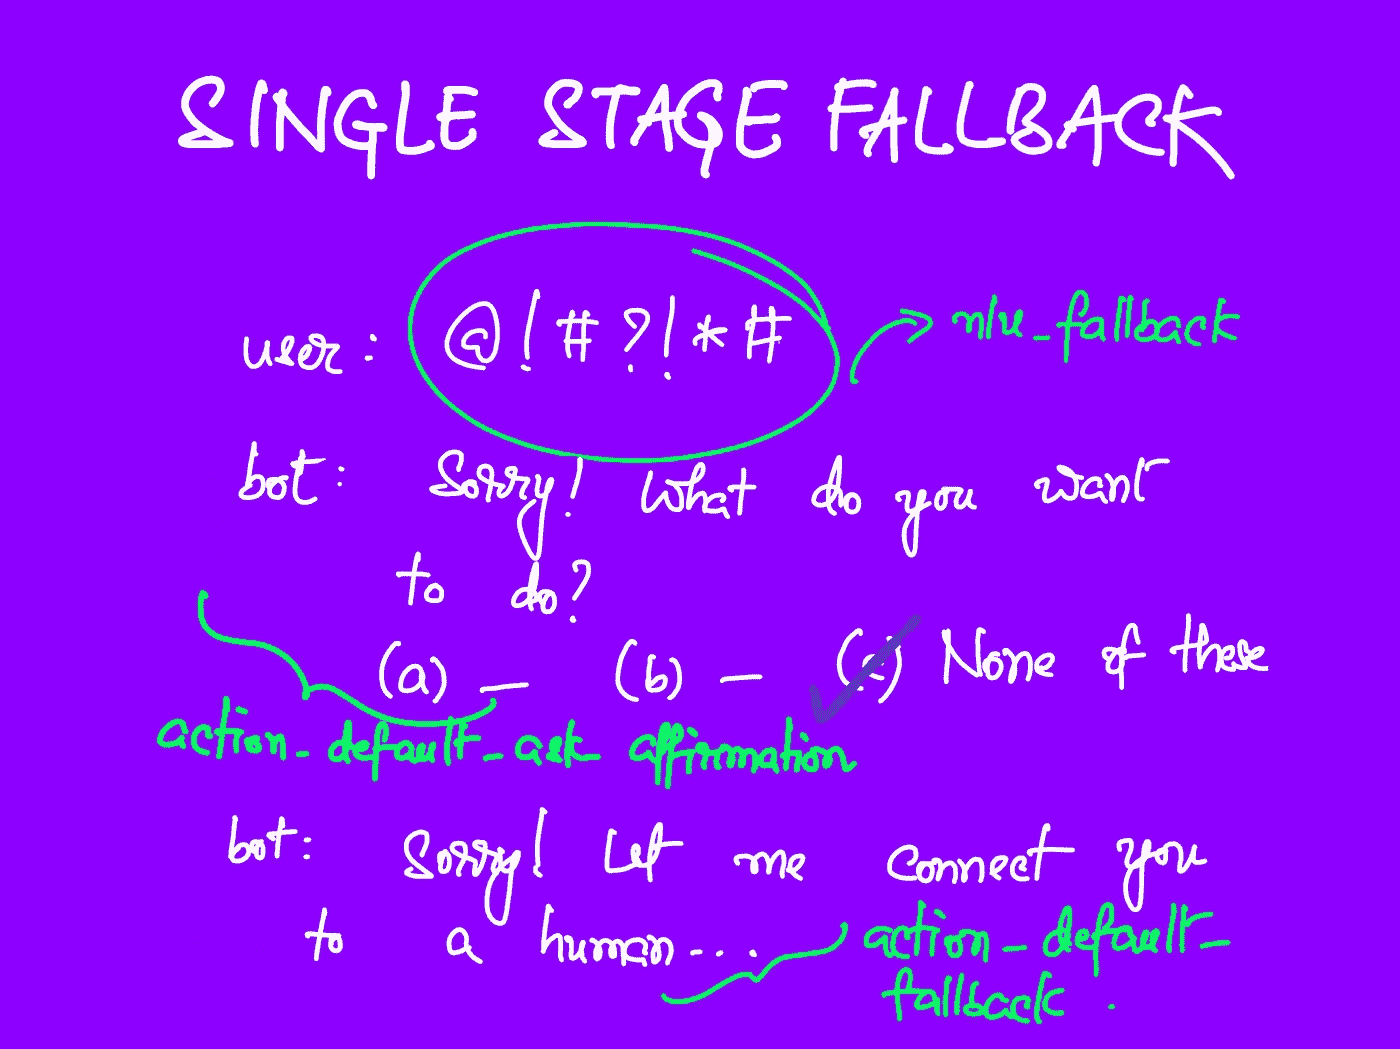 SINGLE STAGE FALLBACK
user: @!#?!*#
nlu_fallback
bot: Sorry! What do you want
to do?
(a) _ (b) _ (c) None of these
action_default_ask affirmation
bot: Sorry! Let me connect you
to a human...
action_default_
fallback.